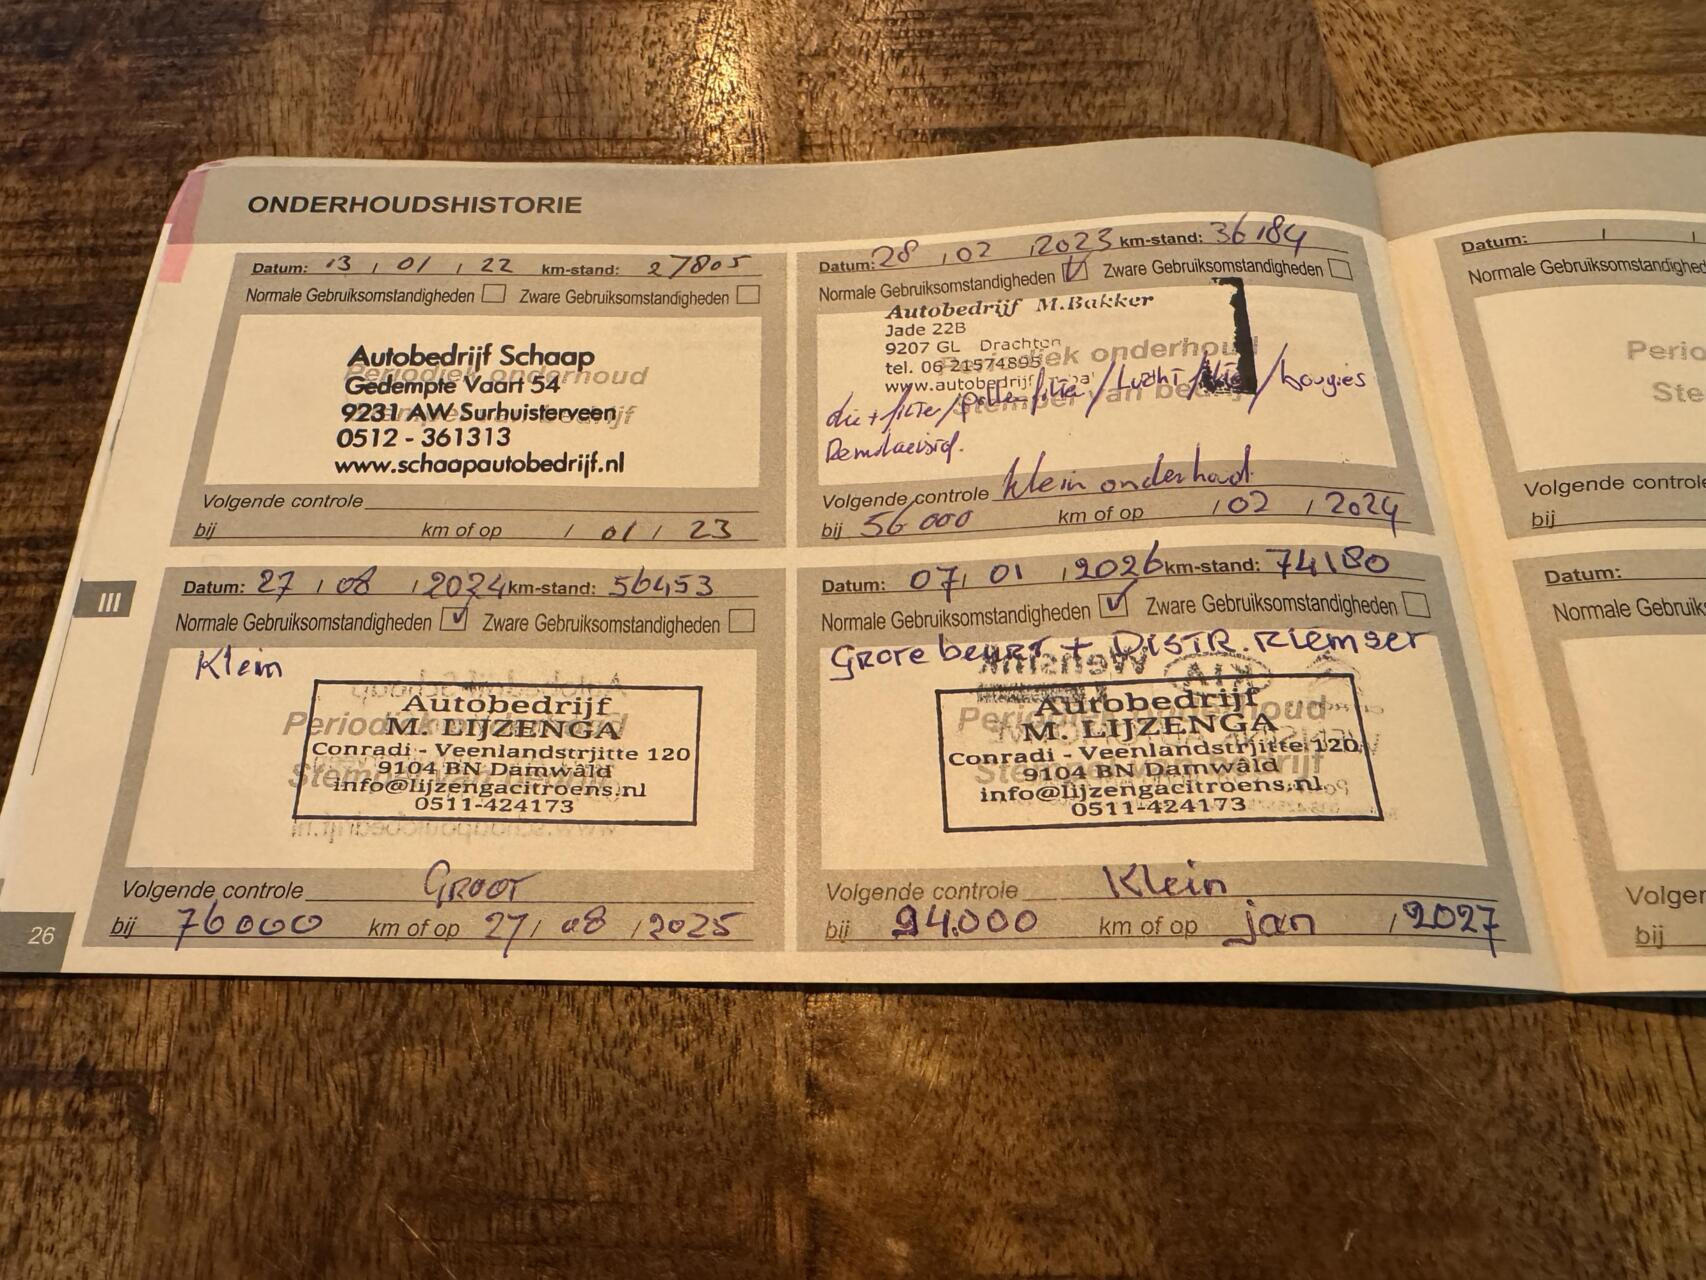 ONDERHOUDSHISTORIE
Datum: 13 / 01 / 22 km-stand: 27805
Normale Gebruiksomstandigheden Zware Gebruiksomstandigheden
Periodiek onderhoud
Autobedrijf Schaap
Gedempte Vaart 54
9231 AW Surhuisterveen
0512 - 361313
www.schaapautobedrijf.nl
Volgende controle
bij km of op / 01 / 23
Datum: 28 / 02 / 2023 km-stand: 36184
Normale Gebruiksomstandigheden Zware Gebruiksomstandigheden
Autobedrijf M.Bakker
Jade 22B
9207 GL Drachten
tel. 06 21574895
www.autobedrijf
Periodiek onderhoud
Stempel van bedrijf
filter / pollen filter / Lucht filter / bougies
Remvloeistof.
Volgende controle klein onderhoud
bij 56000 km of op / 02 / 2024
III
Datum: 27 / 08 / 2024 km-stand: 56453
Normale Gebruiksomstandigheden Zware Gebruiksomstandigheden
Klein
Periodiek onderhoud
Stempel van bedrijf
Autobedrijf
M. LIJZENGA
Conradi - Veenlandstrjitte 120
9104 BN Damwâld
info@lijzengacitroens.nl
0511-424173
Volgende controle GROOT
bij 76000 km of op 27 / 08 / 2025
Datum: 07 / 01 / 2026 km-stand: 74180
Normale Gebruiksomstandigheden Zware Gebruiksomstandigheden
Grote beurt + DISTR. Riem set
Periodiek onderhoud
Stempel van bedrijf
Autobedrijf
M. LIJZENGA
Conradi - Veenlandstrjitte 120
9104 BN Damwâld
info@lijzengacitroens.nl
0511-424173
Volgende controle Klein
bij 94.000 km of op jan / 2027
26
Datum: / /
Normale Gebruiksomstandighed
Perio
Ste
Volgende controle
bij
Datum:
Normale Gebruiks
Volgen
bij